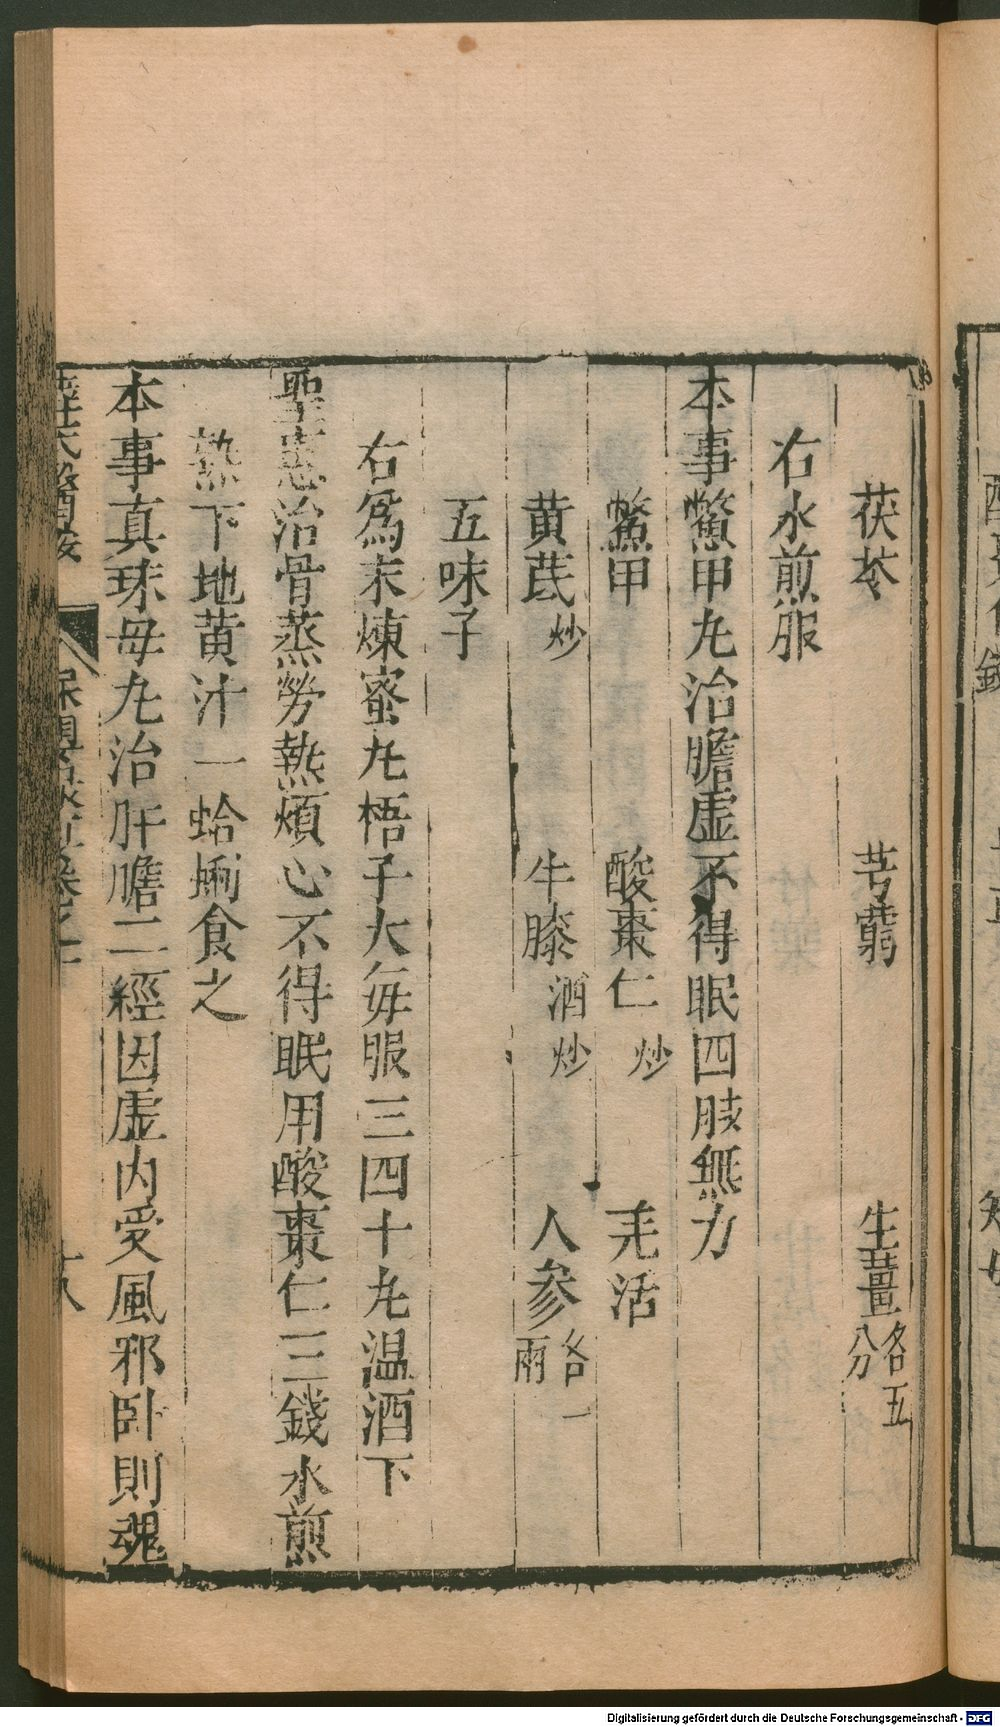 茯苓 芎藭 生薑各五分
右水煎服
本事鱉甲丸治膽虛不得眠四肢無力
鱉甲 酸棗仁炒 羌活
黄芪炒 牛膝酒炒 人參各一兩
五味子
右爲末煉蜜丸梧子大每服三四十丸温酒下
聖惠治骨蒸勞熱煩心不得眠用酸棗仁三錢水煎
熟下地黄汁一蛤蜊食之
本事真珠母丸治肝膽二經因虛内受風邪卧則魂
薛氏醫按
Digitalisierung gefördert durch die Deutsche Forschungsgemeinschaft - DFG